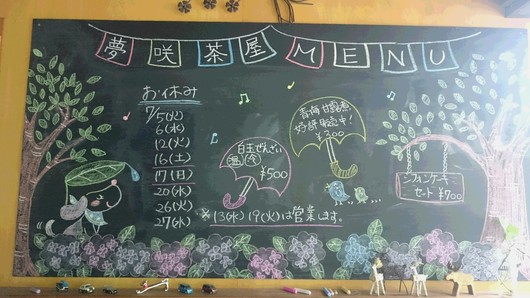 夢咲茶屋MENU
お休み
7/5(火)
6(水)
12(火)
16(土)
17(日)
20(水)
26(火)
27(水)
※13(水)19(火)は営業します。
白玉ぜんざい
温 冷
¥500
青梅甘露煮
好評販売中!
¥300
シフォンケーキ
セット ¥700